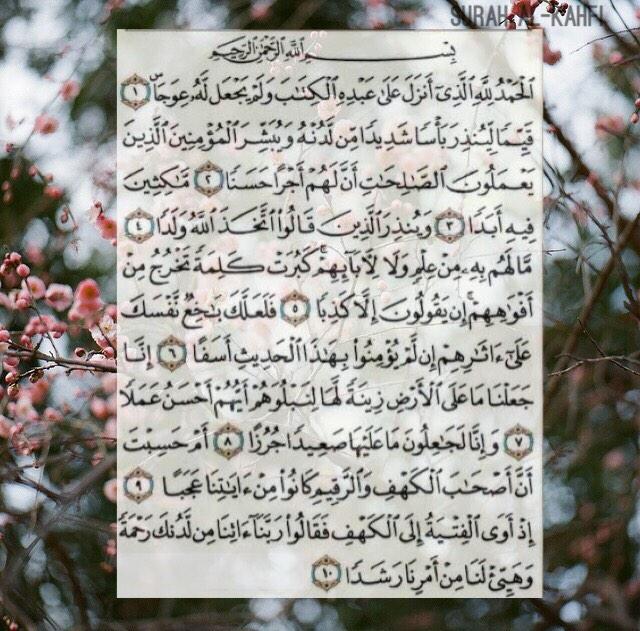 SURAH AL-KAHFI
بِسْمِ اللَّهِ الرَّحْمَٰنِ الرَّحِيمِ
الْحَمْدُ لِلَّهِ الَّذِي أَنزَلَ عَلَىٰ عَبْدِهِ الْكِتَابَ وَلَمْ يَجْعَل لَّهُ عِوَجًا ۜ ١
قَيِّمًا لِّيُنذِرَ بَأْسًا شَدِيدًا مِّن لَّدُنْهُ وَيُبَشِّرَ الْمُؤْمِنِينَ الَّذِينَ
يَعْمَلُونَ الصَّالِحَاتِ أَنَّ لَهُمْ أَجْرًا حَسَنًا ٢ مَّاكِثِينَ
فِيهِ أَبَدًا ٣ وَيُنذِرَ الَّذِينَ قَالُوا اتَّخَذَ اللَّهُ وَلَدًا ٤
مَّا لَهُم بِهِ مِنْ عِلْمٍ وَلَا لِآبَائِهِمْ ۚ كَبُرَتْ كَلِمَةً تَخْرُجُ مِنْ
أَفْوَاهِهِمْ ۚ إِن يَقُولُونَ إِلَّا كَذِبًا ٥ فَلَعَلَّكَ بَاخِعٌ نَّفْسَكَ
عَلَىٰ آثَارِهِمْ إِن لَّمْ يُؤْمِنُوا بِهَٰذَا الْحَدِيثِ أَسَفًا ٦ إِنَّا
جَعَلْنَا مَا عَلَى الْأَرْضِ زِينَةً لَّهَا لِنَبْلُوَهُمْ أَيُّهُمْ أَحْسَنُ عَمَلًا
٧ وَإِنَّا لَجَاعِلُونَ مَا عَلَيْهَا صَعِيدًا جُرُزًا ٨ أَمْ حَسِبْتَ
أَنَّ أَصْحَابَ الْكَهْفِ وَالرَّقِيمِ كَانُوا مِنْ آيَاتِنَا عَجَبًا ٩
إِذْ أَوَى الْفِتْيَةُ إِلَى الْكَهْفِ فَقَالُوا رَبَّنَا آتِنَا مِن لَّدُنكَ رَحْمَةً
وَهَيِّئْ لَنَا مِنْ أَمْرِنَا رَشَدًا ١٠